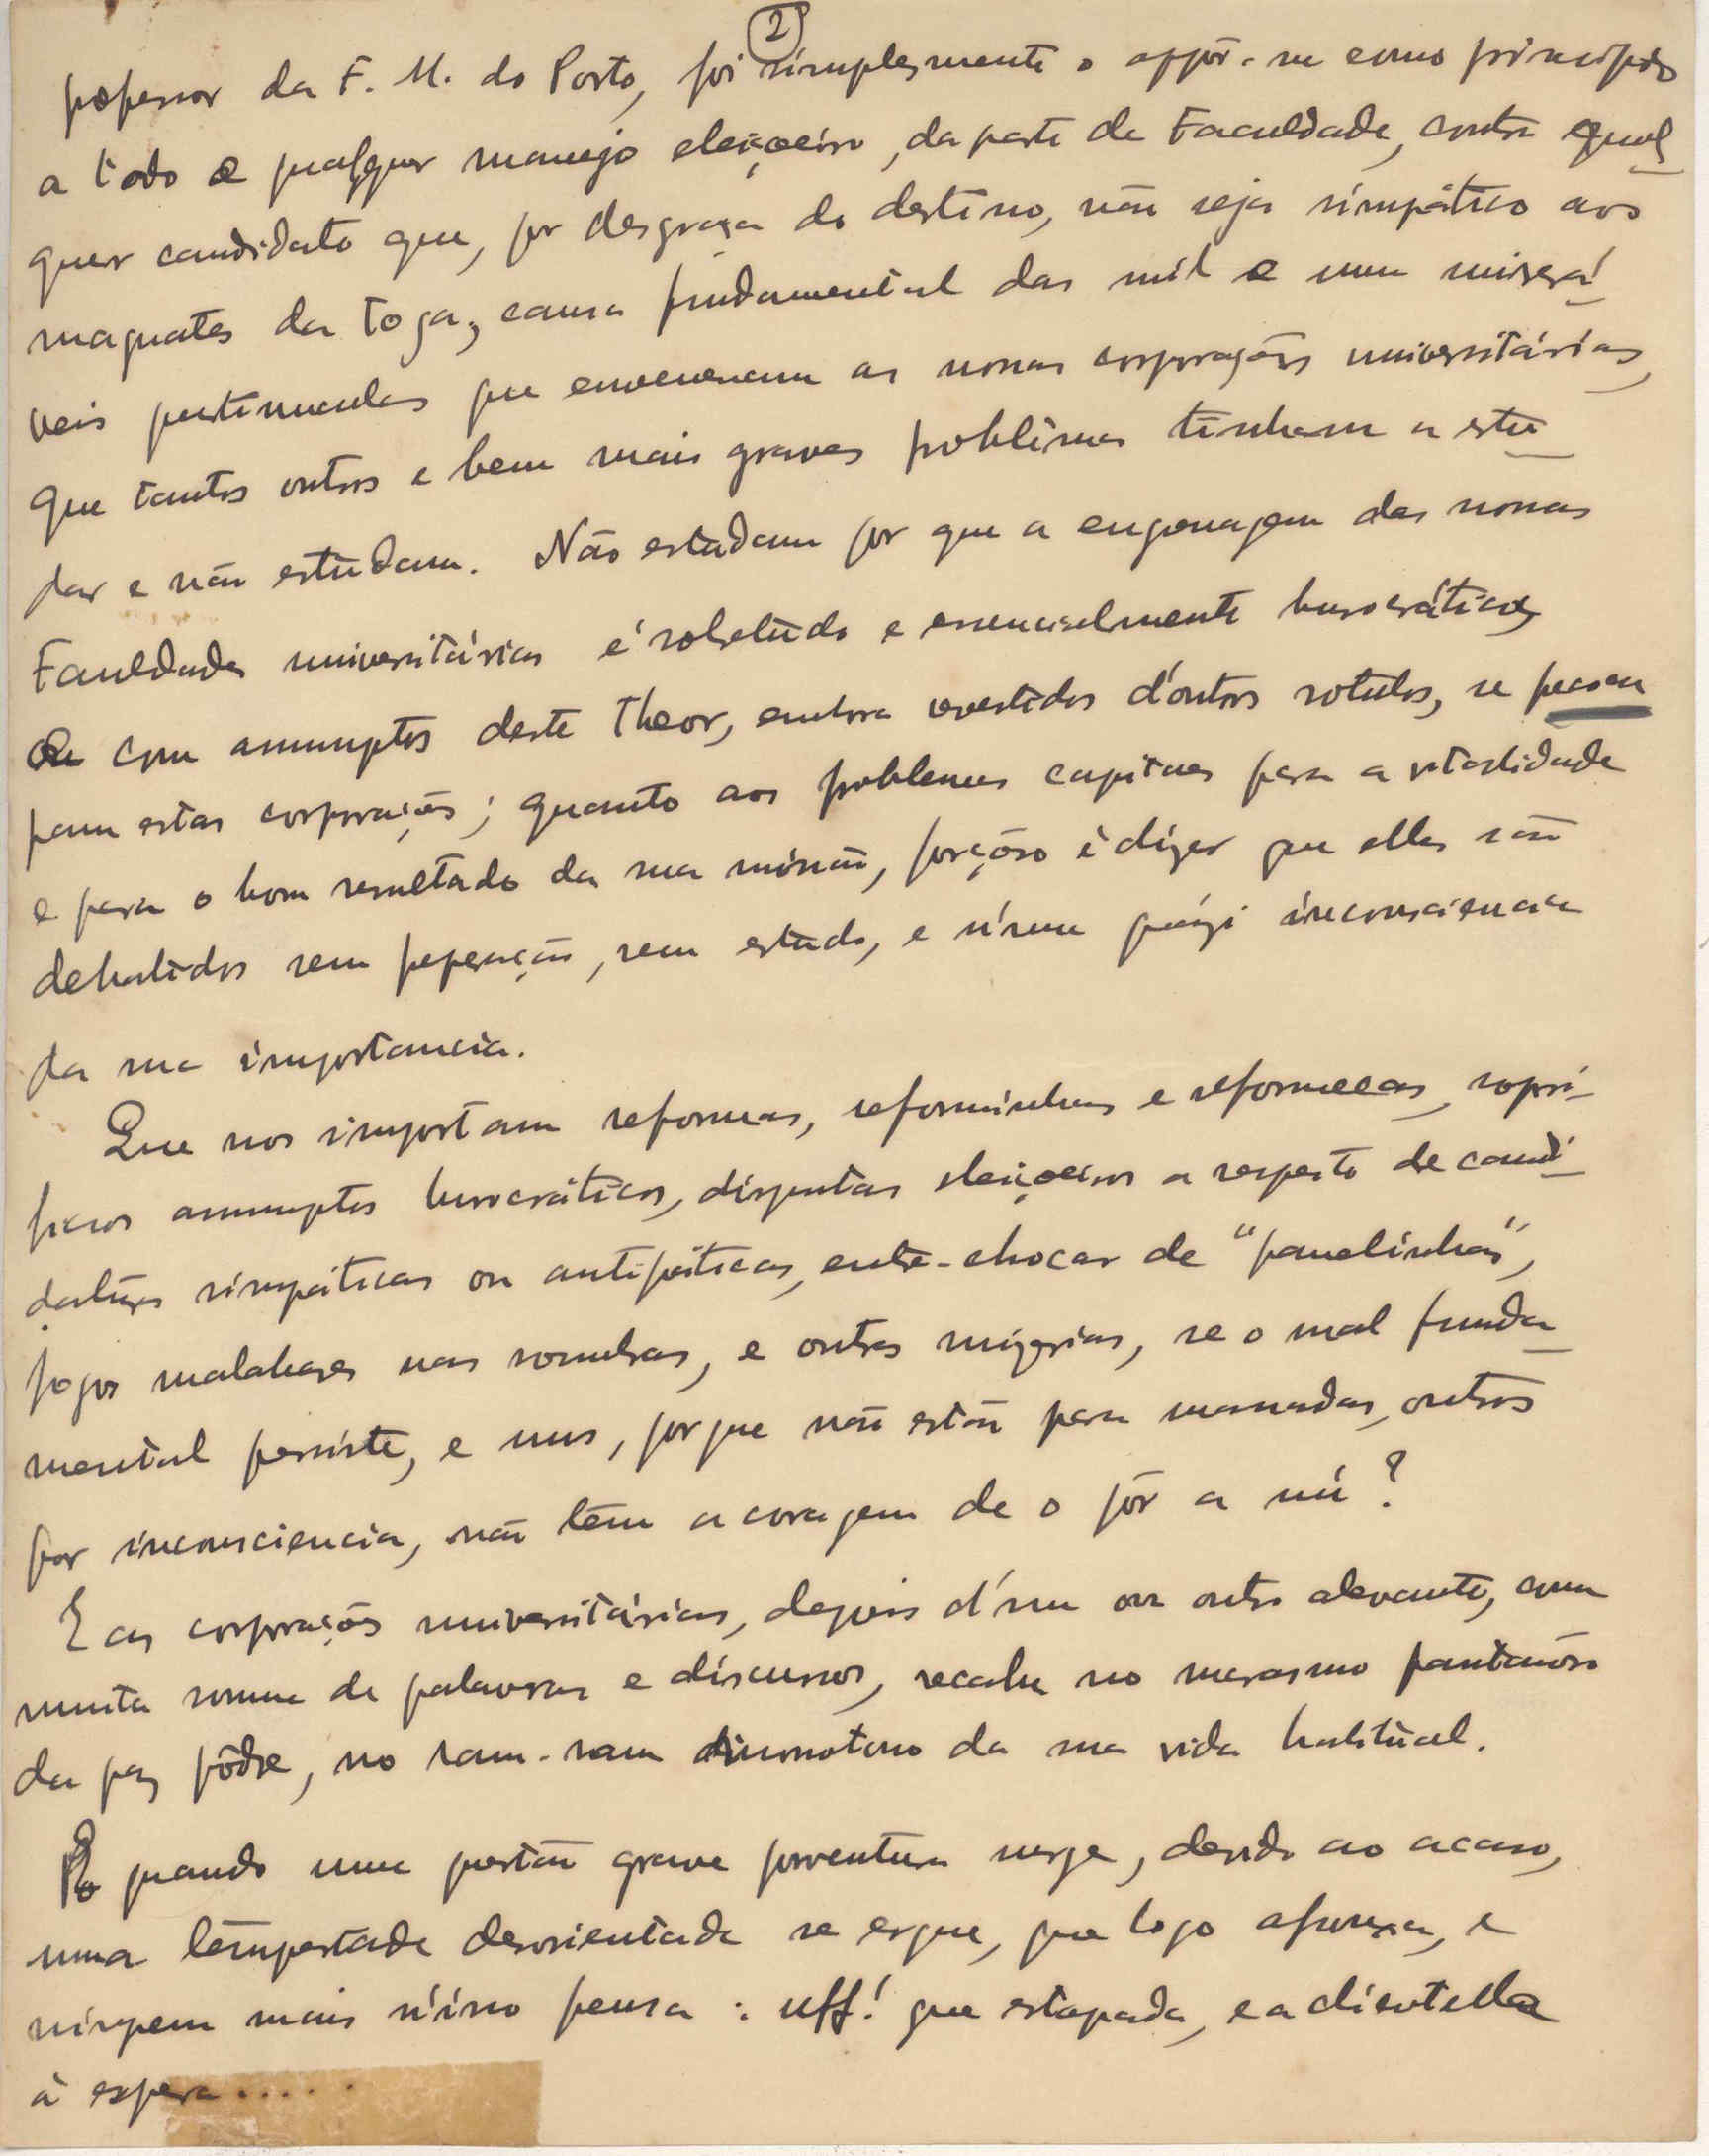 2º
professor da F. M. do Porto, foi simplesmente o oppôr-se como principio
a todo e qualquer manejo eleiçoeiro, da parte da Faculdade, contra qual
quer candidato que, por desgraça do destino, não seja simpático aos
magnates da toga; causa fundamental das mil e uma miserá
veis questinunculas que envenenam as nossas corporações universitárias,
que tantos outros e bem mais graves problêmas tinham a estu
dar e não estudam. Não estudam por que a engrenagem das nossas
Faculdades universitárias é sobretudo e essencialmente burocrática,
e com assumptos deste theor, embora revestidos d'outros rotulos, se preoccu
pam estas corporações; quanto aos problemas capitaes para a vitalidade
e para o bom resultado da sua missão, forçôso é dizer que elles são
debatidos sem preparação, sem estudo, e n'uma quási inconsciencia
da sua importancia.
Que nos importam reformas, reforminhas e reformecas, sopori-
feros assumptos burocráticos, disputas eleiçoeiras a respeito de candi
daturas simpáticas ou antipáticas, entre-chocar de "panelinhas",
jogos malabares nas sombras, e outras misérias, se o mal funda
mental persiste, e uns, porque não estão para massadas, outros
por inconsciencia, não têm a coragem de o pôr a nú?
E as corporações universitárias, depois d'um ou outro alevante, com
muita somma de palavras e discursos, recahe no marasmo pantanôso
da paz pôdre, no ram-ram monotono da sua vida habitual.
E quando uma questão grave porventura surge, devido ao acaso,
uma tempestade desorientada se ergue, que logo afrouxa, e
ninguem mais n'isso pensa: uff! que estopada, e a clientella
à espera.....